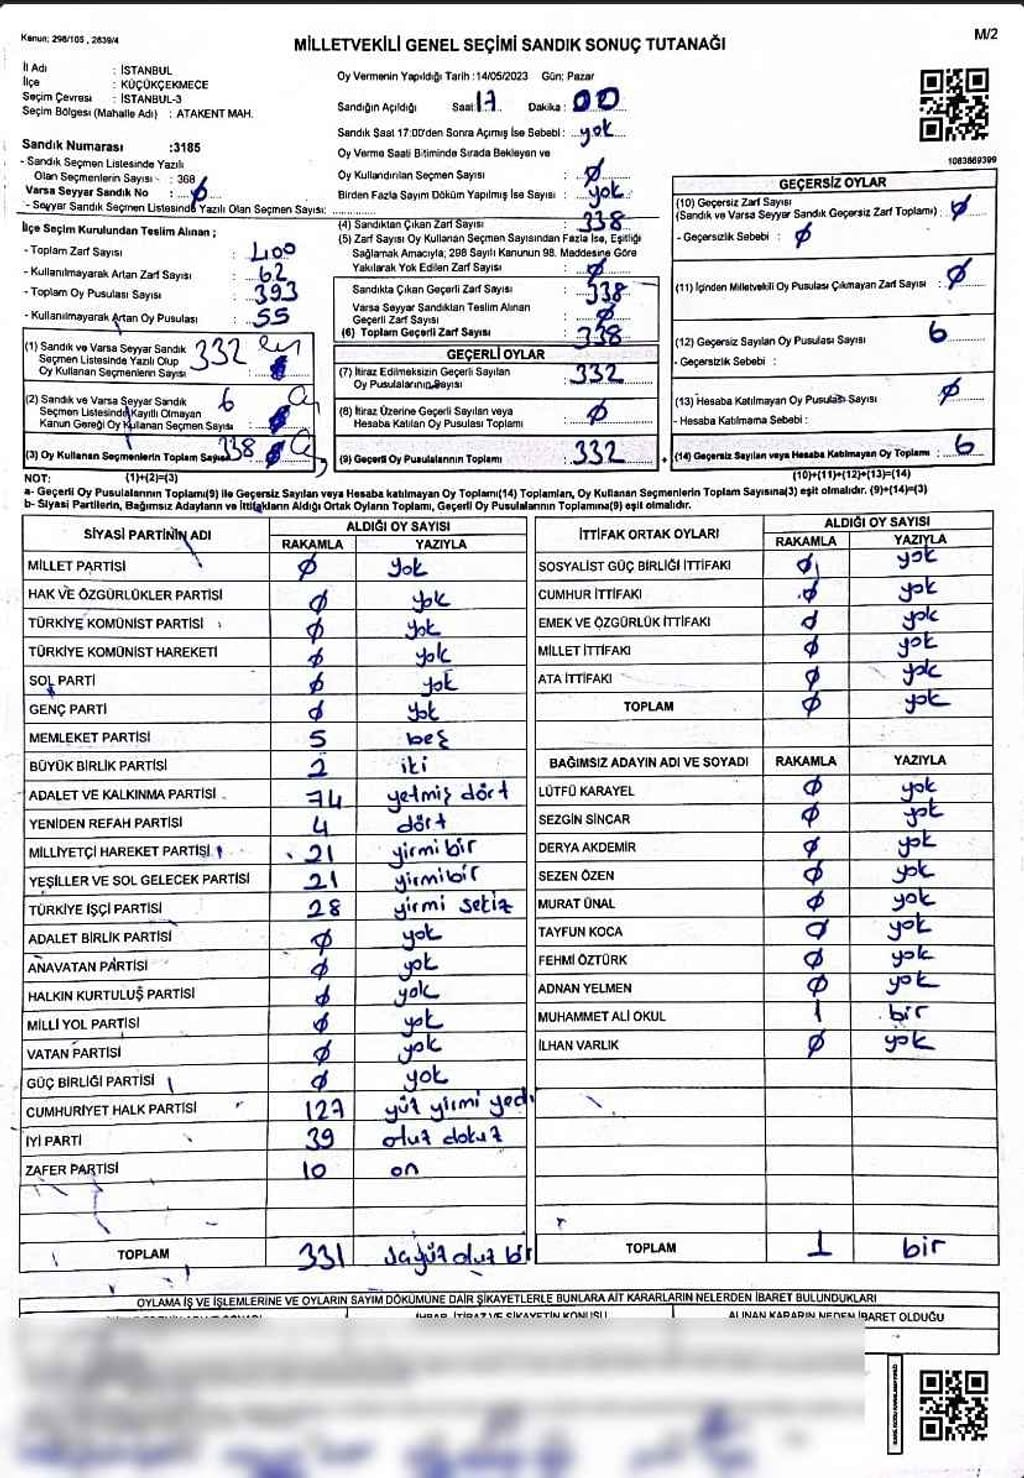 Kanun: 298/105 , 2839/4
M/2
MİLLETVEKİLİ GENEL SEÇİMİ SANDIK SONUÇ TUTANAĞI
İl Adı : İSTANBUL
İlçe : KÜÇÜKÇEKMECE
Seçim Çevresi : İSTANBUL-3
Seçim Bölgesi (Mahalle Adı) : ATAKENT MAH.
Sandık Numarası :3185
- Sandık Seçmen Listesinde Yazılı
Olan Seçmenlerin Sayısı : 368
Varsa Seyyar Sandık No : Ø
- Seyyar Sandık Seçmen Listesinde Yazılı Olan Seçmen Sayısı: ............
İlçe Seçim Kurulundan Teslim Alınan ;
- Toplam Zarf Sayısı : 400
- Kullanılmayarak Artan Zarf Sayısı : 62
- Toplam Oy Pusulası Sayısı : 393
- Kullanılmayarak Artan Oy Pusulası : 55
(1) Sandık ve Varsa Seyyar Sandık
Seçmen Listesinde Yazılı Olup
Oy Kullanan Seçmenlerin Sayısı : 332
(2) Sandık ve Varsa Seyyar Sandık
Seçmen Listesinde Kayıtlı Olmayan
Kanun Gereği Oy Kullanan Seçmen Sayısı : 6
(3) Oy Kullanan Seçmenlerin Toplam Sayısı 338
Oy Vermenin Yapıldığı Tarih :14/05/2023 Gün: Pazar
Sandığın Açıldığı Saat: 17 Dakika : 00
Sandık Saat 17:00'den Sonra Açımış İse Sebebi: yok
Oy Verme Saati Bitiminde Sırada Bekleyen ve
Oy Kullandırılan Seçmen Sayısı : Ø
Birden Fazla Sayım Döküm Yapılmış İse Sayısı : yok
(4) Sandıktan Çıkan Zarf Sayısı : 338
(5) Zarf Sayısı Oy Kullanan Seçmen Sayısından Fazla İse, Eşitliği
Sağlamak Amacıyla; 298 Sayılı Kanunun 98. Maddesine Göre
Yakılarak Yok Edilen Zarf Sayısı : Ø
Sandıkta Çıkan Geçerli Zarf Sayısı : 338
Varsa Seyyar Sandıktan Teslim Alınan
Geçerli Zarf Sayısı : Ø
(6) Toplam Geçerli Zarf Sayısı : 338
GEÇERLİ OYLAR
(7) İtiraz Edilmeksizin Geçerli Sayılan
Oy Pusulalarının Sayısı : 332
(8) İtiraz Üzerine Geçerli Sayılan veya
Hesaba Katılan Oy Pusulası Toplamı : Ø
(9) Geçerli Oy Pusulalarının Toplamı : 332
1083869399
GEÇERSİZ OYLAR
(10) Geçersiz Zarf Sayısı
(Sandık ve Varsa Seyyar Sandık Geçersiz Zarf Toplamı) : Ø
- Geçersizlik Sebebi : Ø
(11) İçinden Milletvekili Oy Pusulası Çıkmayan Zarf Sayısı : Ø
(12) Geçersiz Sayılan Oy Pusulası Sayısı : 6
- Geçersizlik Sebebi :
(13) Hesaba Katılmayan Oy Pusulası Sayısı : Ø
- Hesaba Katılmama Sebebi :
+ (14) Geçersiz Sayılan veya Hesaba Katılmayan Oy Toplamı : 6
NOT: (1)+(2)=(3) (10)+(11)+(12)+(13)=(14)
a- Geçerli Oy Pusulalarının Toplamı(9) ile Geçersiz Sayılan veya Hesaba katılmayan Oy Toplamı(14) Toplamları, Oy Kullanan Seçmenlerin Toplam Sayısına(3) eşit olmalıdır. (9)+(14)=(3)
b- Siyasi Partilerin, Bağımsız Adayların ve İttifakların Aldığı Ortak Oyların Toplamı, Geçerli Oy Pusulalarının Toplamına(9) eşit olmalıdır.
SİYASİ PARTİNİN ADI ALDIĞI OY SAYISI
RAKAMLA YAZIYLA
MİLLET PARTİSİ Ø yok
HAK VE ÖZGÜRLÜKLER PARTİSİ Ø yok
TÜRKİYE KOMÜNİST PARTİSİ Ø yok
TÜRKİYE KOMÜNİST HAREKETİ Ø yok
SOL PARTİ Ø yok
GENÇ PARTİ Ø yok
MEMLEKET PARTİSİ 5 beş
BÜYÜK BİRLİK PARTİSİ 2 iki
ADALET VE KALKINMA PARTİSİ 74 yetmiş dört
YENİDEN REFAH PARTİSİ 4 dört
MİLLİYETÇİ HAREKET PARTİSİ 21 yirmi bir
YEŞİLLER VE SOL GELECEK PARTİSİ 21 yirmi bir
TÜRKİYE İŞÇİ PARTİSİ 28 yirmi sekiz
ADALET BİRLİK PARTİSİ Ø yok
ANAVATAN PARTİSİ Ø yok
HALKIN KURTULUŞ PARTİSİ Ø yok
MİLLİ YOL PARTİSİ Ø yok
VATAN PARTİSİ Ø yok
GÜÇ BİRLİĞİ PARTİSİ Ø yok
CUMHURİYET HALK PARTİSİ 127 yüz yirmi yedi
İYİ PARTİ 39 otuz dokuz
ZAFER PARTİSİ 10 on
TOPLAM 331 üçyüz otuz bir
İTTİFAK ORTAK OYLARI ALDIĞI OY SAYISI
RAKAMLA YAZIYLA
SOSYALİST GÜÇ BİRLİĞİ İTTİFAKI Ø yok
CUMHUR İTTİFAKI Ø yok
EMEK VE ÖZGÜRLÜK İTTİFAKI Ø yok
MİLLET İTTİFAKI Ø yok
ATA İTTİFAKI Ø yok
TOPLAM Ø yok
BAĞIMSIZ ADAYIN ADI VE SOYADI RAKAMLA YAZIYLA
LÜTFÜ KARAYEL Ø yok
SEZGİN SİNCAR Ø yok
DERYA AKDEMİR Ø yok
SEZEN ÖZEN Ø yok
MURAT ÜNAL Ø yok
TAYFUN KOCA Ø yok
FEHMİ ÖZTÜRK Ø yok
ADNAN YELMEN Ø yok
MUHAMMET ALİ OKUL 1 bir
İLHAN VARLIK Ø yok
TOPLAM 1 bir
OYLAMA İŞ VE İŞLEMLERİNE VE OYLARIN SAYIM DÖKÜMÜNE DAİR ŞİKAYETLERLE BUNLARA AİT KARARLARIN NELERDEN İBARET BULUNDUKLARI
İHBAR, İTİRAZ VE ŞİKAYETİN KONUSU ALINAN KARARIN NEDEN İBARET OLDUĞU